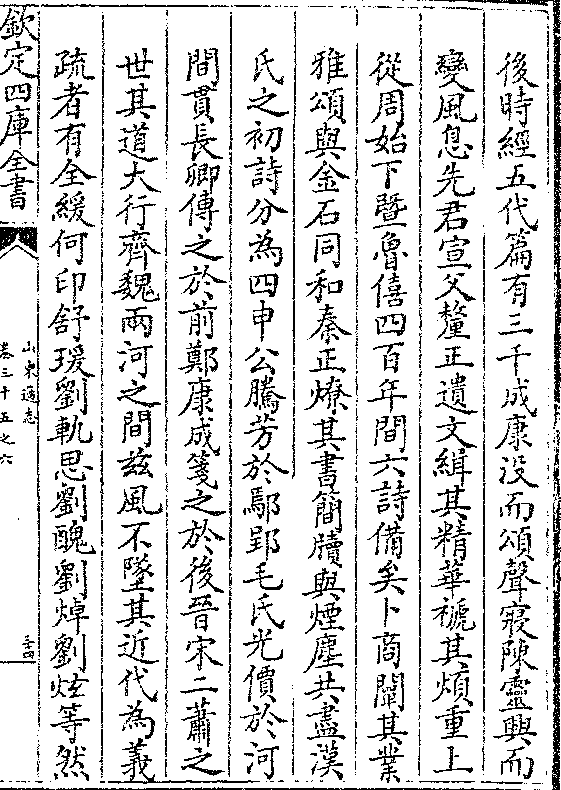 後時經五代篇有三千成康没而頌聲寢陳靈興而
變風息先君宣父釐正遺文緝其精華褫其煩重上
從周始下暨魯僖四百年間六詩備矣卜商闡其業
雅頌與金石同和秦正燎其書簡牘與煙塵共盡漢
氏之初詩分為四申公騰芳於鄢郢毛氏光價於河
間貫長卿傳之於前鄭康成箋之於後晉宋二蕭之
世其道大行齊魏兩河之間兹風不墜其近代為義
疏者有全緩何印舒瑗劉軌思劉醜劉焯劉炫等然
欽定四庫全書
山東通志
卷三十五之六